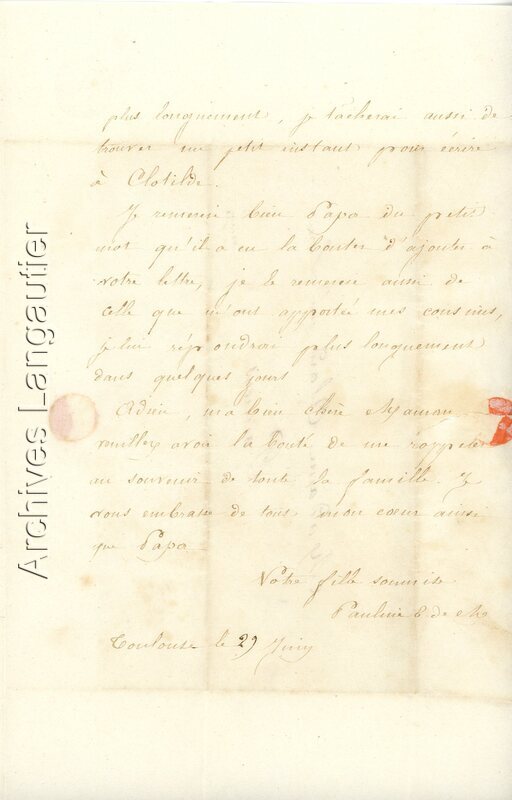 plus longuement, je tacherai aussi de
trouver un petit instant pour écrire
à Clotilde.
Je remercie bien Papa du petit
mot qu'il a eu la bonter d'ajouter à
votre lettre, je le remercie aussi de
celle que m'ont apportée mes cousins,
je lui répondrai plus longuement
dans quelques jours
Adieu, ma bien chère Maman
veuillez avoir la bonté de me rappeler
au souvenir de toute la famille. Je
vous embrasse de tout mon coeur ainsi
que Papa
Votre fille soumise
Pauline de
Toulouse le 29
Archives Langautier